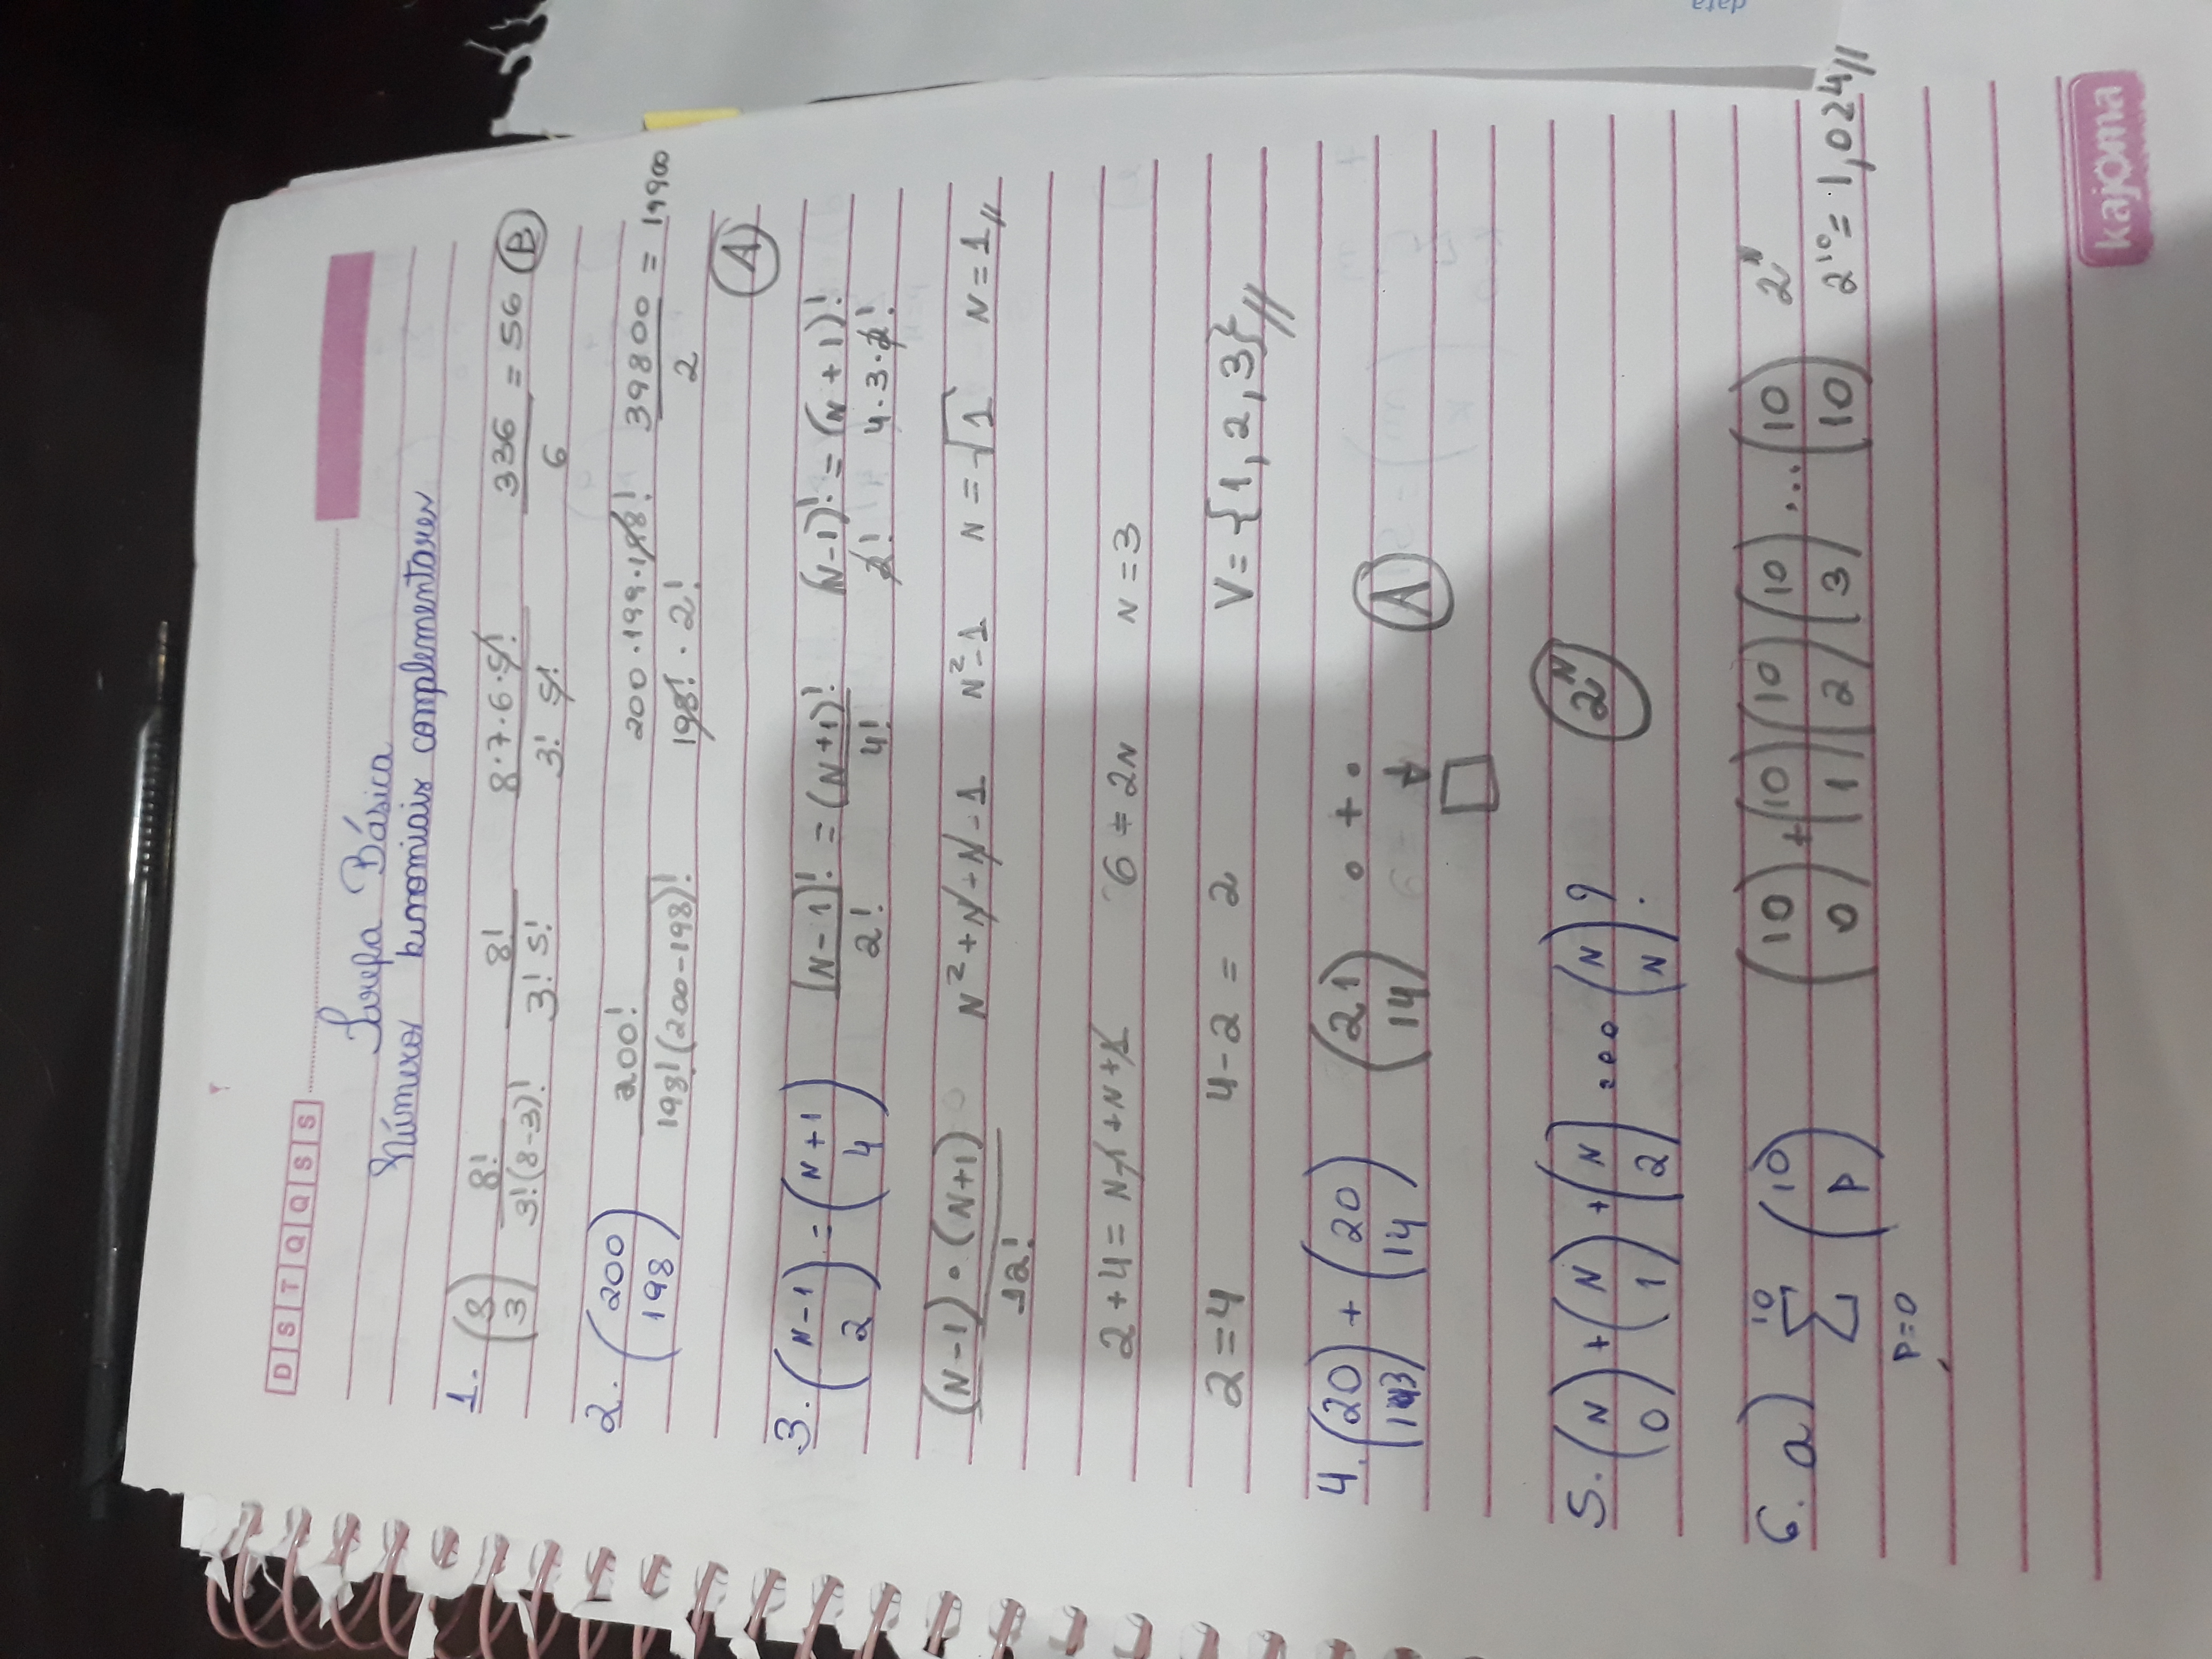 D S T Q Q S S
Tarefa Básica
Números binomiais complementares
1. (8 3) 8!/3!(8-3)! 8!/3! 5! 8·7·6·5!/3! 5! 336/6 = 56 (B)
2. (200 198) 200!/198!(200-198)! 200·199·198!/198!·2! 39800/2 = 19900
(A)
3. (N-1 2) = (N+1 4) (N-1)!/2! = (N+1)!/4! (N-1)!/2! = (N+1)!/4·3·2!
(N-1)·(N+1)/12! N²+N-N-1 N²-1 N=√1 N=1//
2+4= N-1+N+1 6=2N N=3
2=4 4-2= 2 V={1,2,3}//
4. (20 13) + (20 14) (21 14) ∘+∘ ↓ □ (A)
5. (N 0) + (N 1) + (N 2) ... (N N)? 2^N
6. a) 10 Σ P=0 (10 P) (10 0)+(10 1)(10 2)(10 3)...(10 10) 2^N
2^10 = 1,024//
kajoma
data